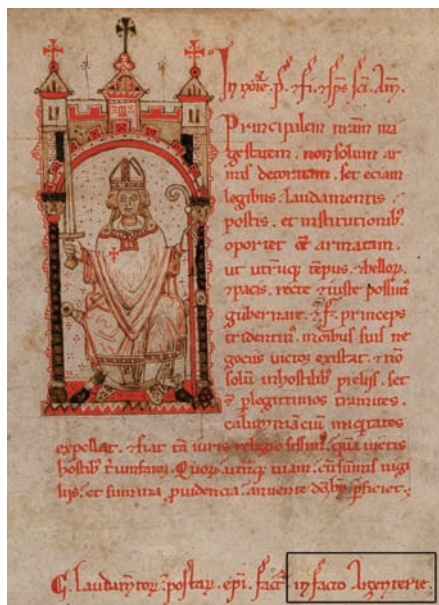 In noīe · p̄ · ⁊ fi · ⁊ sp̄s sc̄i · Am̄ ·
Principalem nr̄am ma
gestatem · non solum ar
mis decoratam · set eciam
legibus · laudamentis
postis · et institutionib⁹
oportet eē armatam ·
ut utrūq; tēpus · ⁊ belloꝝ ·
⁊ pacis · recte ⁊ iuste possim⁹
gubernare · ⁊ · F · princeps
tridentin⁹ ·
gociis victos existat · ⁊ nō
solū in hostilib⁹ prelijs · set
⁊ ꝑ legittimos tramites ·
calumniāciūm iniquitates
expellat · ⁊ fiat tā iuris religiosissim⁹ · quā victis
hostib⁹ t̓umfator · Quoꝝ · utrāq; uiam · cū sūmis uigi
lijs · et summa ꝓuidencia · annuente dn̄o ꝑficiet ·
G · laudam̄toꝝ · postaꝝ · ep̄i · fact̄ · in facto Argenterie ·